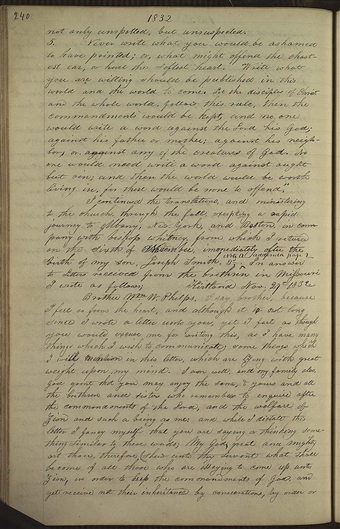 240
1832
not only unspotted, but unsuspected.
5. Never write what you would be ashamed
to have printed; or, what might offend the chast-
est ear, or hurt the softest heart. Write what
you are writing should be published in this
world and the world to come. Let the disciples of Christ
and the whole world, follow this rule, then the
commandments would be kept, and no one
would write a word against the Lord his God;
against his father or mother, against his neigh-
bor, or against any of the creatures of God. No
one would need write a word against aught
but sin; and then the world would be worth
living in, for there would be none to offend."
I continued the translation, and ministering
to the church, through the fall, excepting a rapid
journey to Albany, New York and Boston in com-
pany with bishop Whitney, from which I returned
on the sixth of November, immediately after the
birth of my son, Joseph Smith, In answer
to letters received from the brethren in Missouri
I wrote as follows, Kirtland Nov. 27th 1832
Brother Wm W. Phelps, I say brother, because
I feel so from the heart, and although it is not long
since I wrote a letter unto you, yet I feel as though
you would excuse me for writing this, as I have many
things which I wish to communicate; some things which
I will mention in this letter, which are lying with great
weight upon my mind. I am well, and my family also
God grant that you may enjoy the same, & yours and all
the brethren and sisters who remember to enquire after
the commandments of the Lord, and the welfare of
Zion and such a being as me: and while I dictate this
letter I fancy myself that you are saying or thinking some-
thing similar to these words, My God, great and mighty
art thou, therefore shew unto thy servant what shall
become of all those who are essaying to come up unto
Zion, in order to keep the commandments of God, and
yet receive not their inheritance by consecrations, by order or